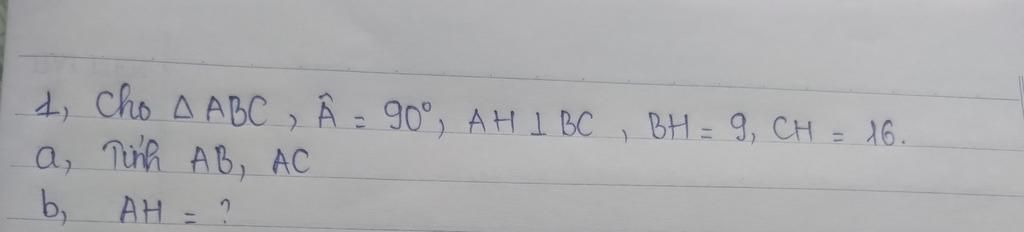 1, Cho △ ABC, Â = 90°, AH ⊥ BC, BH = 9, CH = 16.
a, Tính AB, AC
b, AH = ?